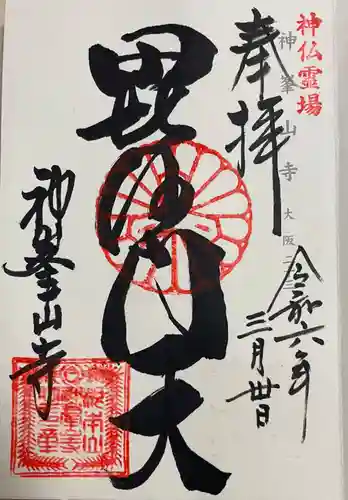 神仏霊場
神峯山寺 大阪二三
奉拝
令和六年
三月卅日
毘沙門天
神峯山寺